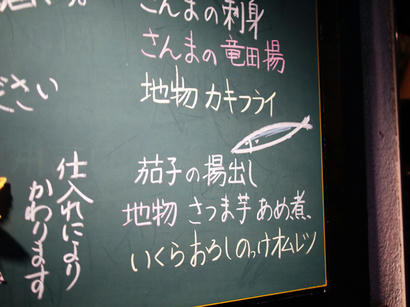 さんまの刺身
さんまの竜田揚
地物 カキフライ
茄子の揚出し
地物 さつま芋 あめ煮、
いくらおろしのっけオムレツ
仕入れにより
かわります
ださい